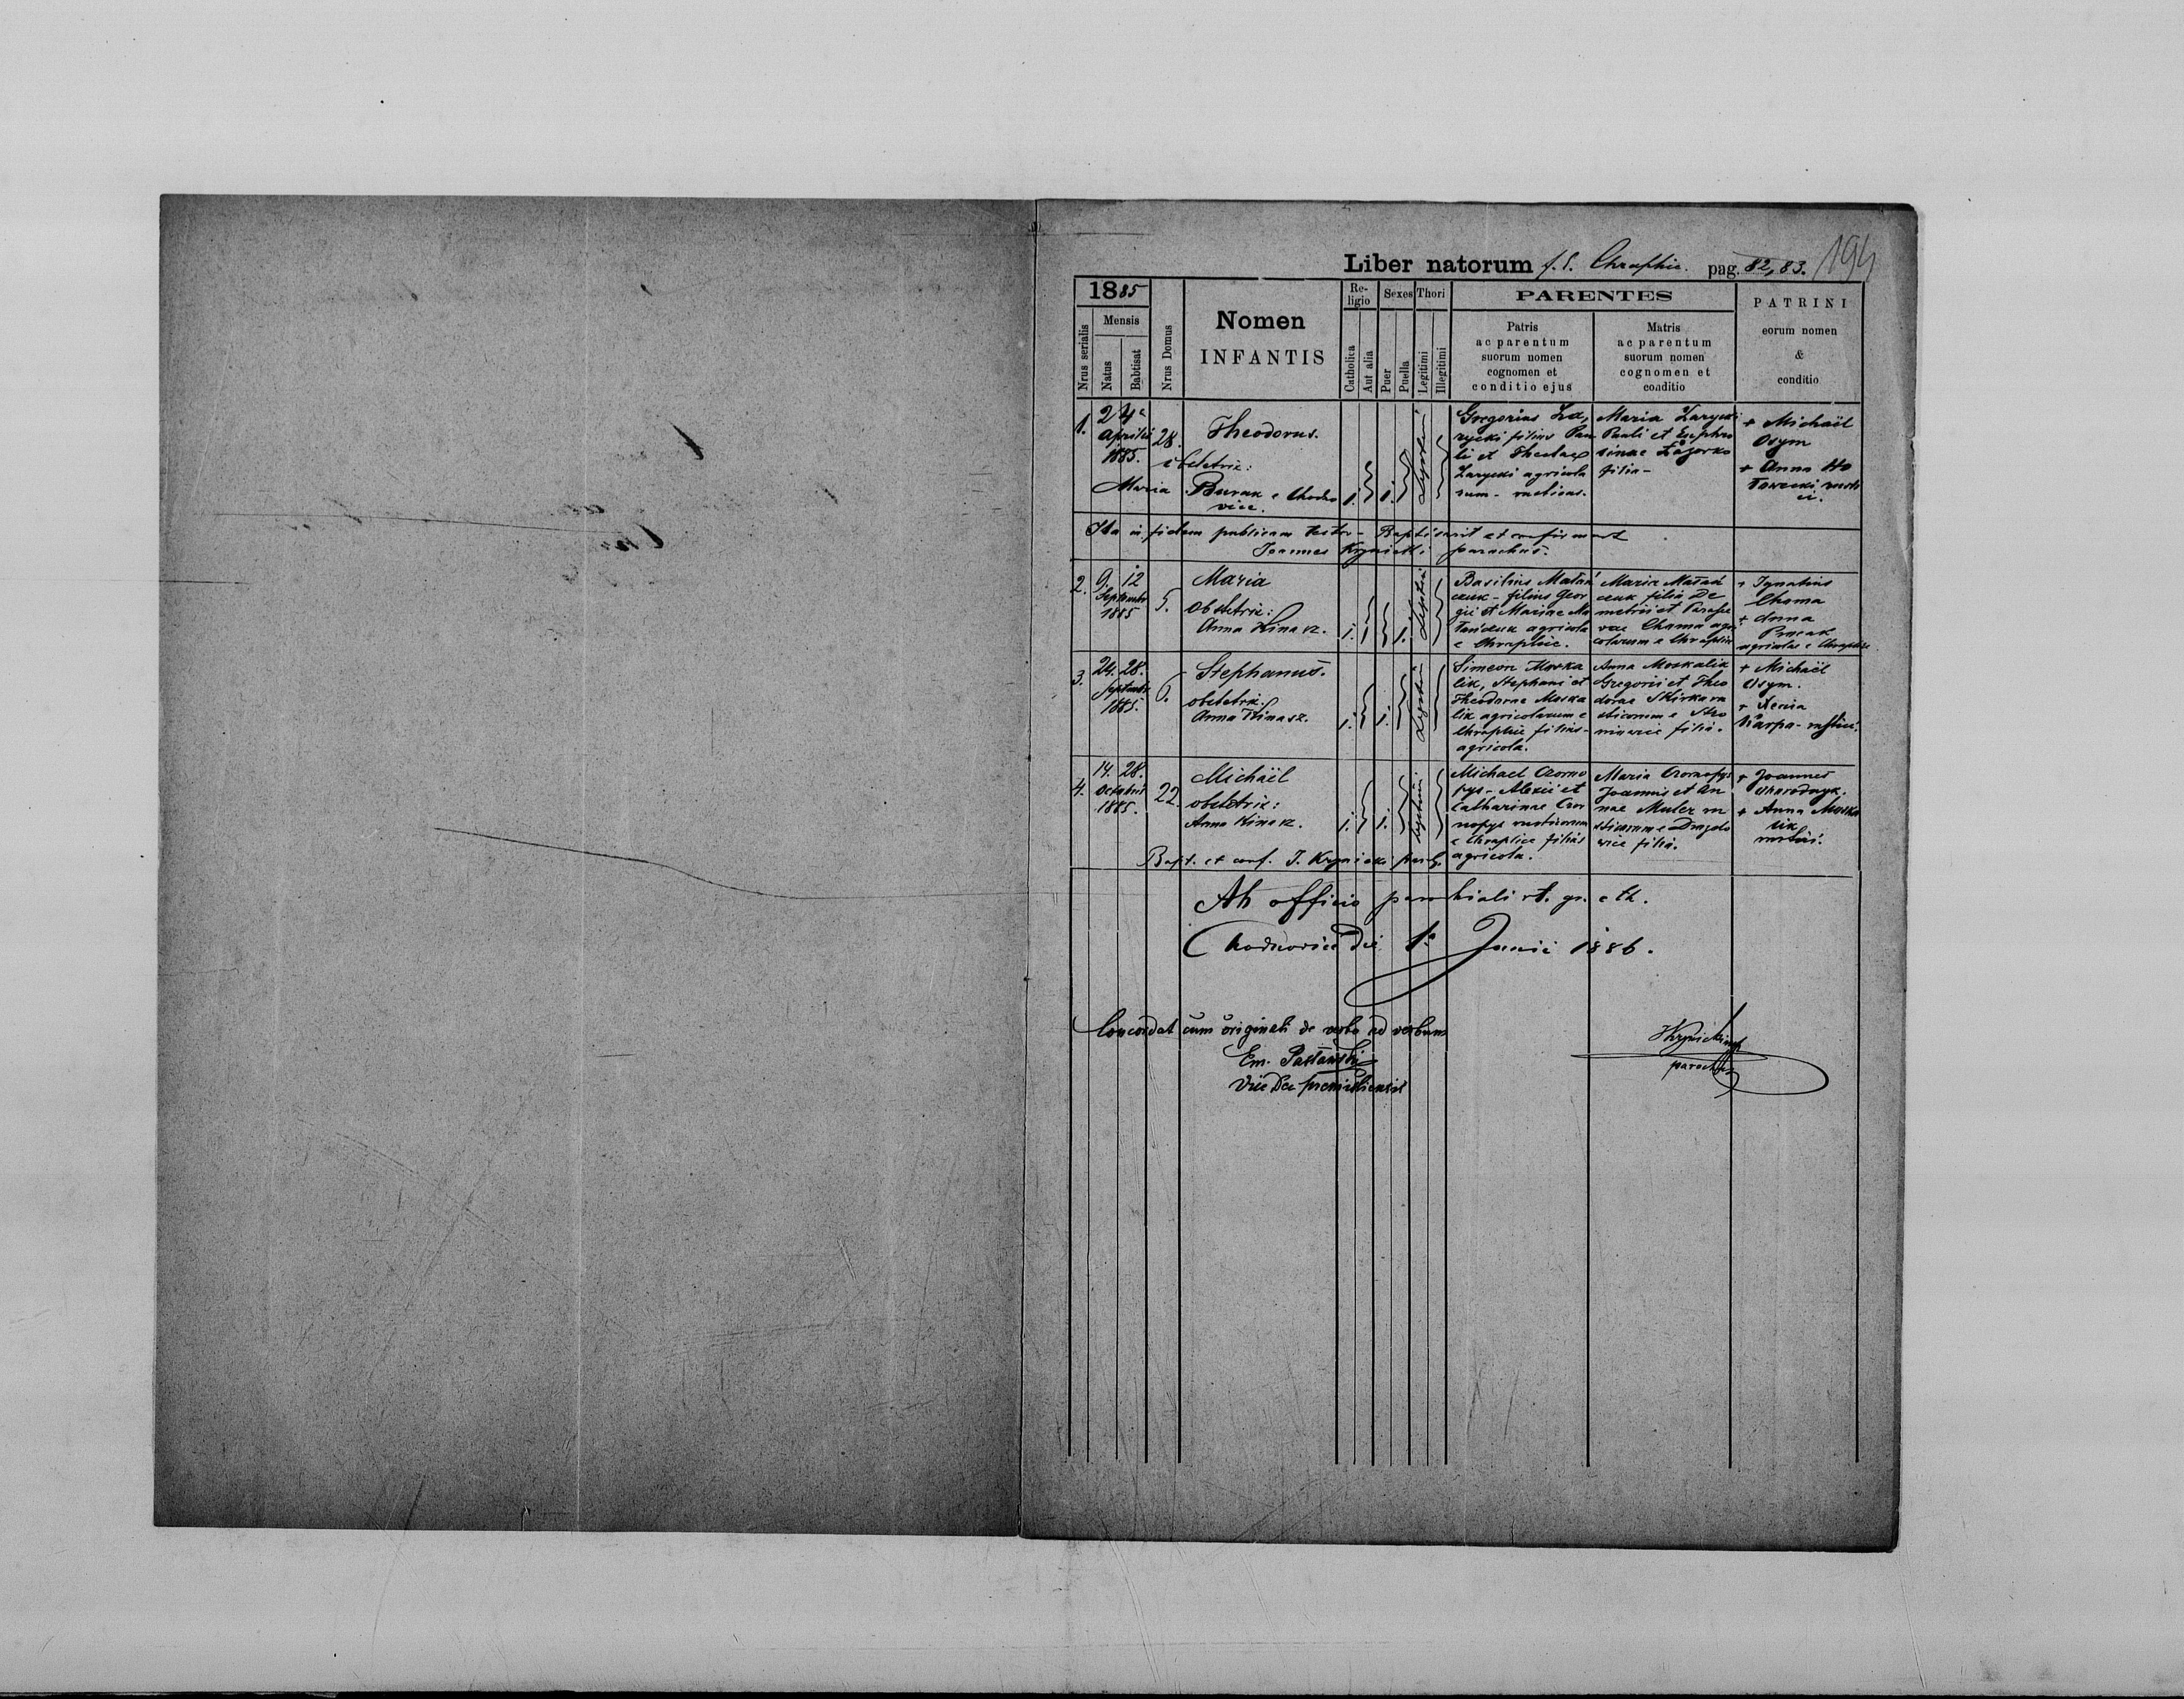 Liber natorum f. E. Chraplice. pag. 82, 83. 194
1885
Nrus serialis
Mensis
Natus
Babtisat
Nrus Domus
Nomen
INFANTIS
Religio
Catholica
Aut alia
Sexes
Puer
Puella
Thori
Legitimi
Illegitimi
PARENTES
Patris
ac parentum
suorum nomen
cognomen et
conditio ejus
Matris
ac parentum
suorum nomen
cognomen et
conditio
PATRINI
eorum nomen
&
conditio
1.
24
Aprilis
1885.
28.
Theodorus.
obstetrix:
Maria Burak e Chodno
vice.
1.
1.
Legitimi
Gregorius Za,
rycki filius Pau
li et Theclae
Zarycki agricola
rum - rusticus.
Maria Zarycki
Pauli et Euphro
sinae Zagorko
filia -
+ Michaël
Osym
+ Anna Ho
rustici.
Ita in fidem publicam testor - Baptisavit et confirmavit
Joannes Krynicki parochus.
2.
9. 12
Septembr
1885
5.
Maria
obstetrix:
Anna Kinasz.
1.
1.
Legitimi
Basilius Matań
czuk - filius Geor
gii et Mariae Ma
tańczuk agricola
e Chraplice.
Maria Matań
czuk filia De
metrii et Parasce
vae Chama agri
colarum e Chraplice
+ Ignatius
Chama
+ Anna
agricolae e Chraplice.
3.
24. 28.
Septembr
1885.
6.
Stephanus.
obstetrix
Anna Kinasz.
1.
1.
Legitimi
Simeon Moska
lik, Stephani et
Theodorae Moska
lik agricolarum e
Chraplice filius -
agricola.
Anna Moskalik
Gregorii et Theo
dorae Skirka ru
sticorum e
filia.
+ Michaël
Osym.
+ Xenia
Karpa - rustici.
4.
14. 28.
Octobris
1885.
22.
Michaël
obstetrix:
Anna Kinasz.
1.
1.
Legitimi
Michael Czorno
pys - Alexii et
Catharinae Czor
nopys rusticorum
e Chraplice filius
agricola.
Maria Czornopys
Joannis et An
nae Muler ru
sticorum e
vice filia.
+ Joannes
Ohorodnyk.
+ Anna Moska
lik
rustici.
Bapt. et conf. J. Krynicki par.
Ab officio parochiali rt. gr. cth.
Chodnovice die 1. Junii 1886.
Concordat cum originali de verbo ad verbum
Em.
Vice Dec premisliensis
JKrynicki
parochus